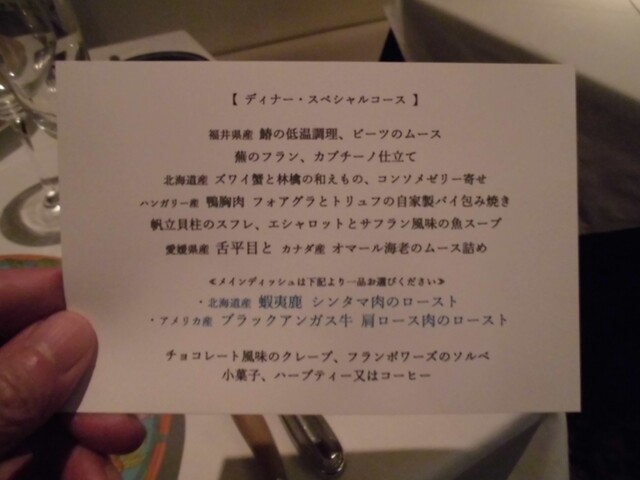 【 ディナー・スペシャルコース 】
福井県産 鰆の低温調理、ビーツのムース
蕪のフラン、カプチーノ仕立て
北海道産 ズワイ蟹と林檎の和えもの、コンソメゼリー寄せ
ハンガリー産 鴨胸肉 フォアグラとトリュフの自家製パイ包み焼き
帆立貝柱のスフレ、エシャロットとサフラン風味の魚スープ
愛媛県産 舌平目と カナダ産 オマール海老のムース詰め
≪メインディッシュは下記より一品お選びください≫
・北海道産 蝦夷鹿 シンタマ肉のロースト
・アメリカ産 ブラックアンガス牛 肩ロース肉のロースト
チョコレート風味のクレープ、フランボワーズのソルベ
小菓子、ハーブティー又はコーヒー